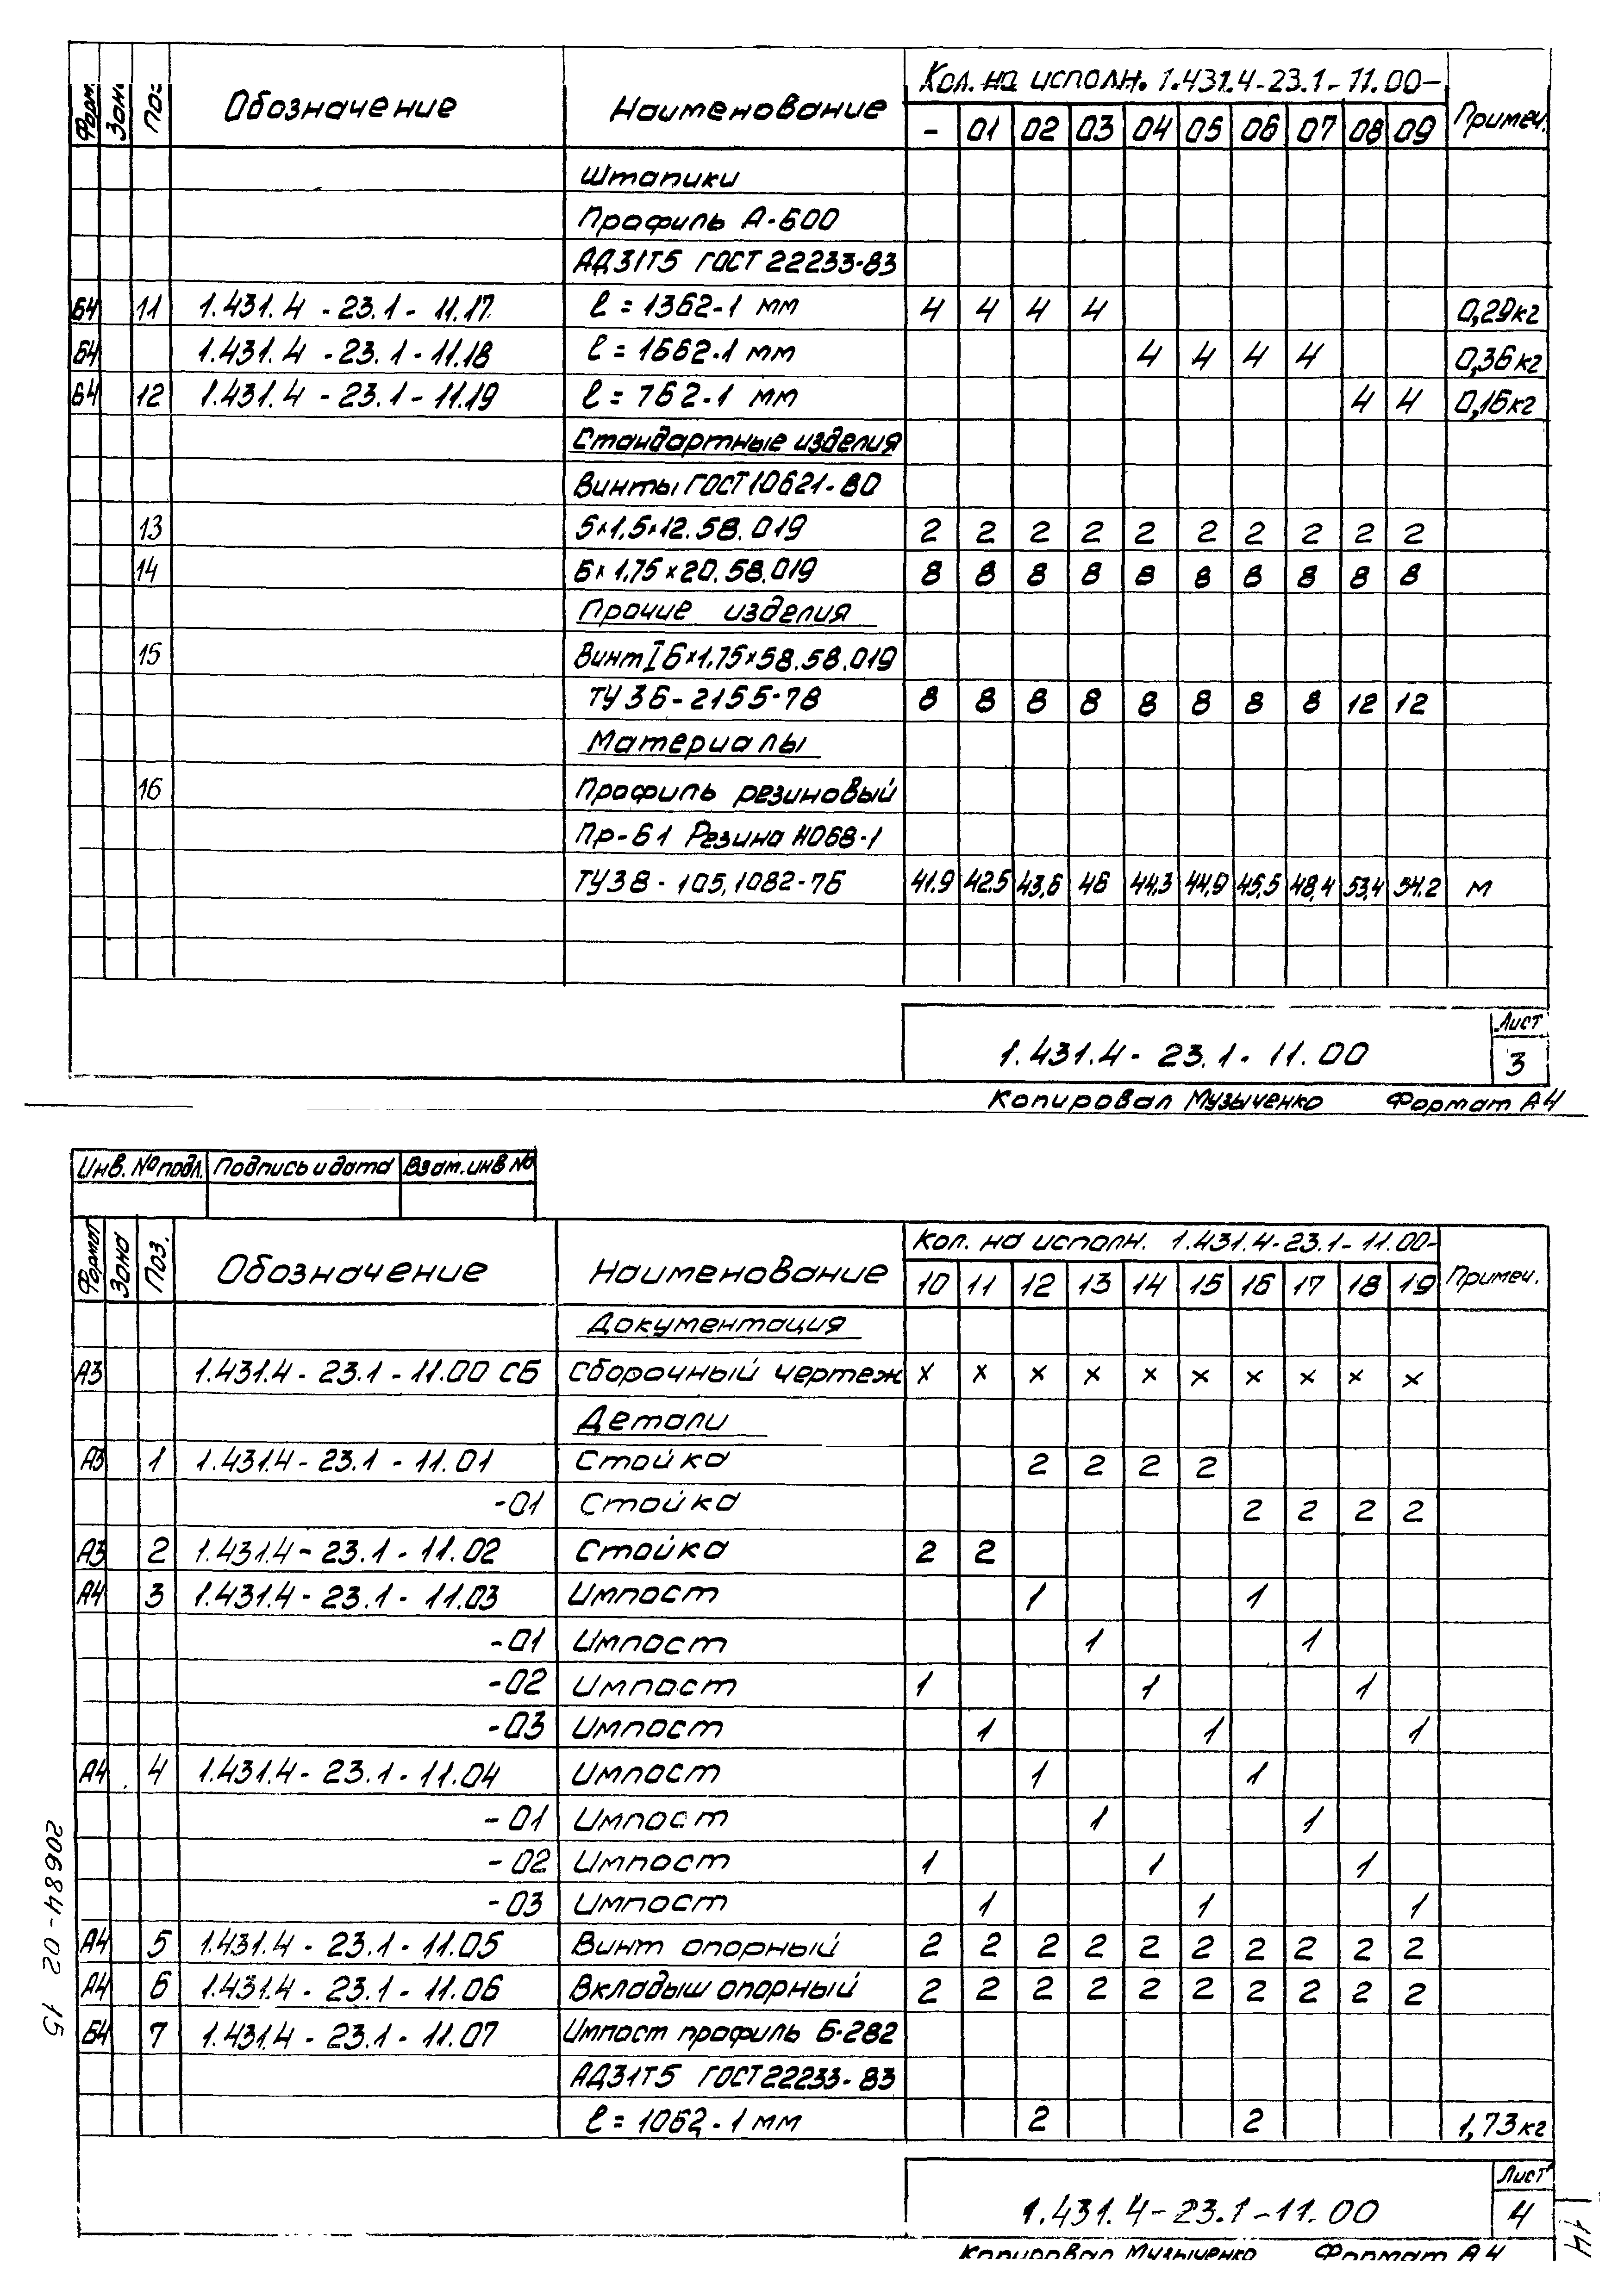 Форм. Зон. Поз Обозначение Наименование Кол. на исполн. 1.431.4-23.1-11.00- Примеч.
- 01 02 03 04 05 06 07 08 09
Штапики
Профиль А-600
АД31Т5 ГОСТ 22233-83
Б4 11 1.431.4-23.1-11.17 ℓ=1362-1 мм 4 4 4 4 0,29кг
Б4 1.431.4-23.1-11.18 ℓ=1662-1 мм 4 4 4 4 0,36кг
Б4 12 1.431.4-23.1-11.19 ℓ=762-1 мм 4 4 0,16кг
Стандартные изделия
Винты ГОСТ 10621-80
13 5×1,5×12.58.019 2 2 2 2 2 2 2 2 2 2
14 6×1,75×20.58.019 8 8 8 8 8 8 8 8 8 8
Прочие изделия
15 Винт I 6×1,75×58.58.019
ТУ 36-2155-78 8 8 8 8 8 8 8 8 12 12
Материалы
16 Профиль резиновый
Пр-61 Резина НО68-1
ТУ38-105.1082-76 41.9 42.5 43,6 46 44,3 44,9 45,5 48,4 53,4 54.2 м
1.431.4-23.1-11.00 Лист
3
Копировал Музыченко Формат А4
Инв. № подл. Подпись и дата Взам. инв №
Формат Зона Поз. Обозначение Наименование Кол. на исполн. 1.431.4-23.1-11.00- Примеч.
10 11 12 13 14 15 16 17 18 19
Документация
А3 1.431.4-23.1-11.00 СБ Сборочный чертеж × × × × × × × × × ×
Детали
А3 1 1.431.4-23.1-11.01 Стойка 2 2 2 2
-01 Стойка 2 2 2 2
А3 2 1.431.4-23.1-11.02 Стойка 2 2
А4 3 1.431.4-23.1-11.03 Импост 1 1
-01 Импост 1 1
-02 Импост 1 1 1
-03 Импост 1 1 1
А4 4 1.431.4-23.1-11.04 Импост 1 1
-01 Импост 1 1
-02 Импост 1 1 1
-03 Импост 1 1 1
А4 5 1.431.4-23.1-11.05 Винт опорный 2 2 2 2 2 2 2 2 2 2
А4 6 1.431.4-23.1-11.06 Вкладыш опорный 2 2 2 2 2 2 2 2 2 2
Б4 7 1.431.4-23.1-11.07 Импост профиль Б-282
АД31Т5 ГОСТ 22233-83
ℓ=1062-1 мм 2 2 1,73кг
1.431.4-23.1-11.00 Лист
4
Копировал Музыченко Формат А4
20684-02 15
14